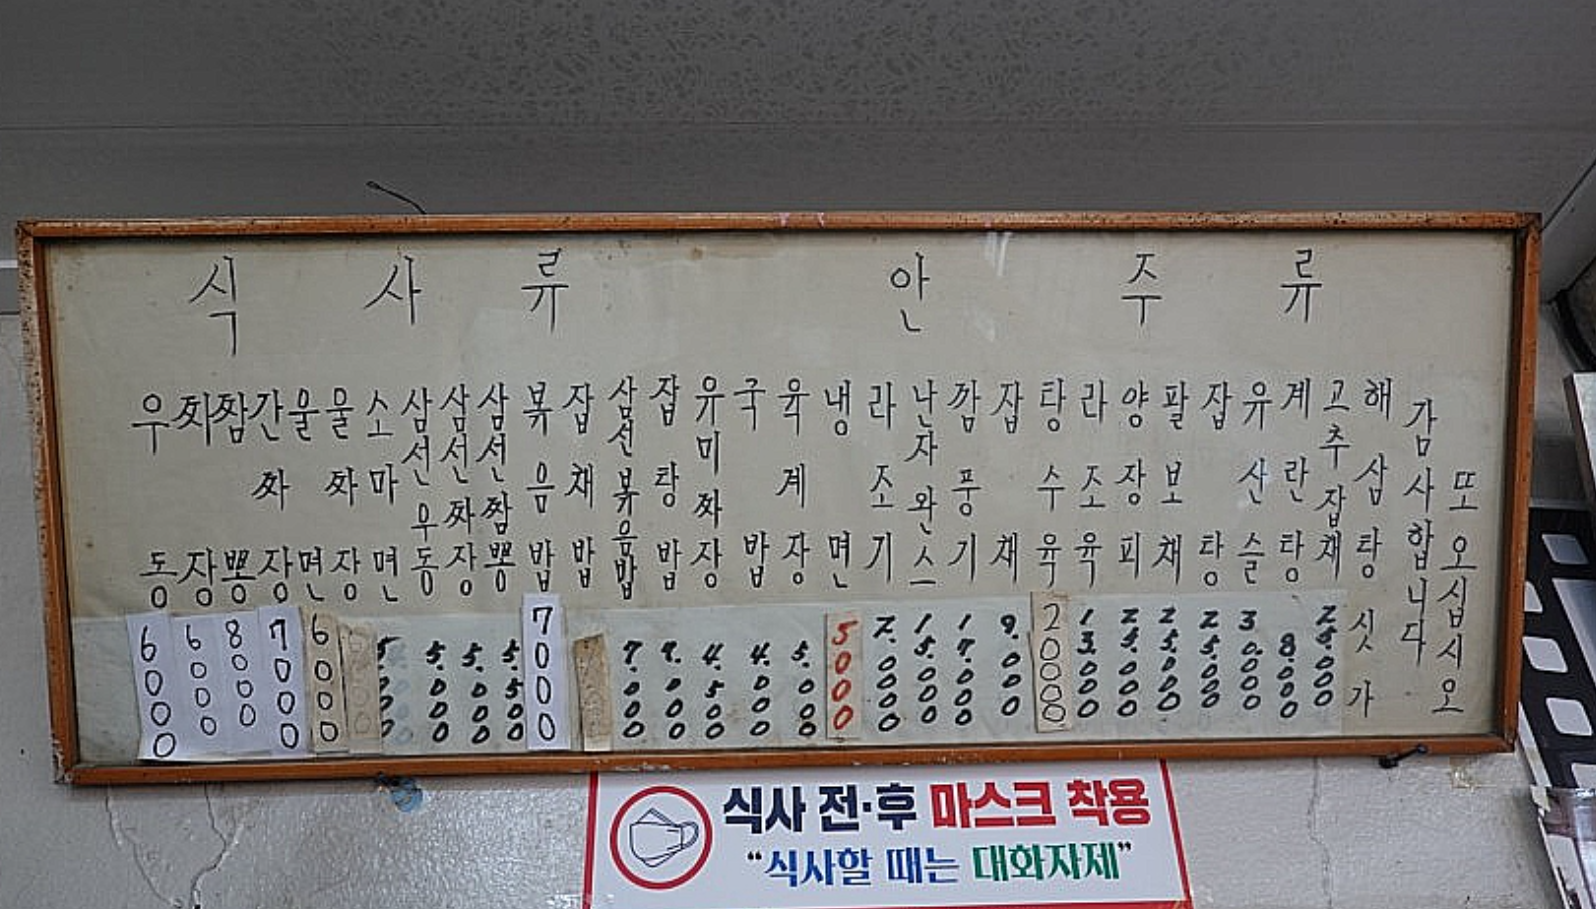 식사류
안주류
우동 6000
짜장 6000
짬뽕 8000
간짜장 7000
울면 6000
울짜장
소마면
삼선우동 5.000
삼선짜장 5.000
삼선짬뽕 5.500
볶음밥 7000
잡채밥
삼선볶음밥 7.000
잡탕밥 7.000
유미짜장 4.500
국밥 4.000
육계장 5.000
냉면 5000
라조기 2.0000
난자완스 15.000
깜풍기 17.000
잡채 9.000
탕수육 20000
라조육 13.000
양장피 25.000
팔보채 25.000
잡탕 25.000
유산슬 30.000
계란탕 8.000
고추잡채 25.000
해삼탕 싯가
감사합니다
또 오십시오
식사 전·후 마스크 착용
“식사할 때는 대화자제”